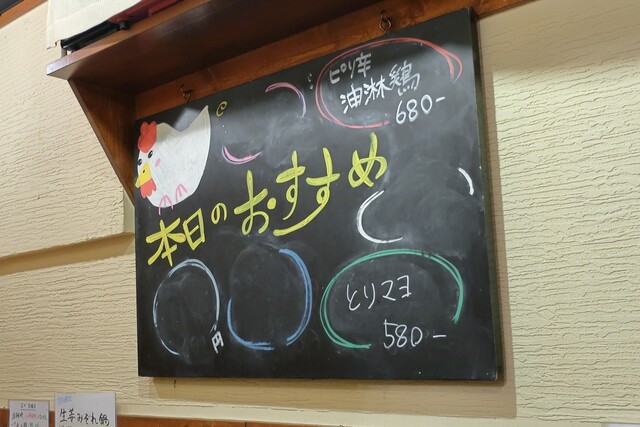 ピリ辛
油淋鶏
680-
本日のおすすめ
とりマヨ
580-
円
生芋みぞれ鍋